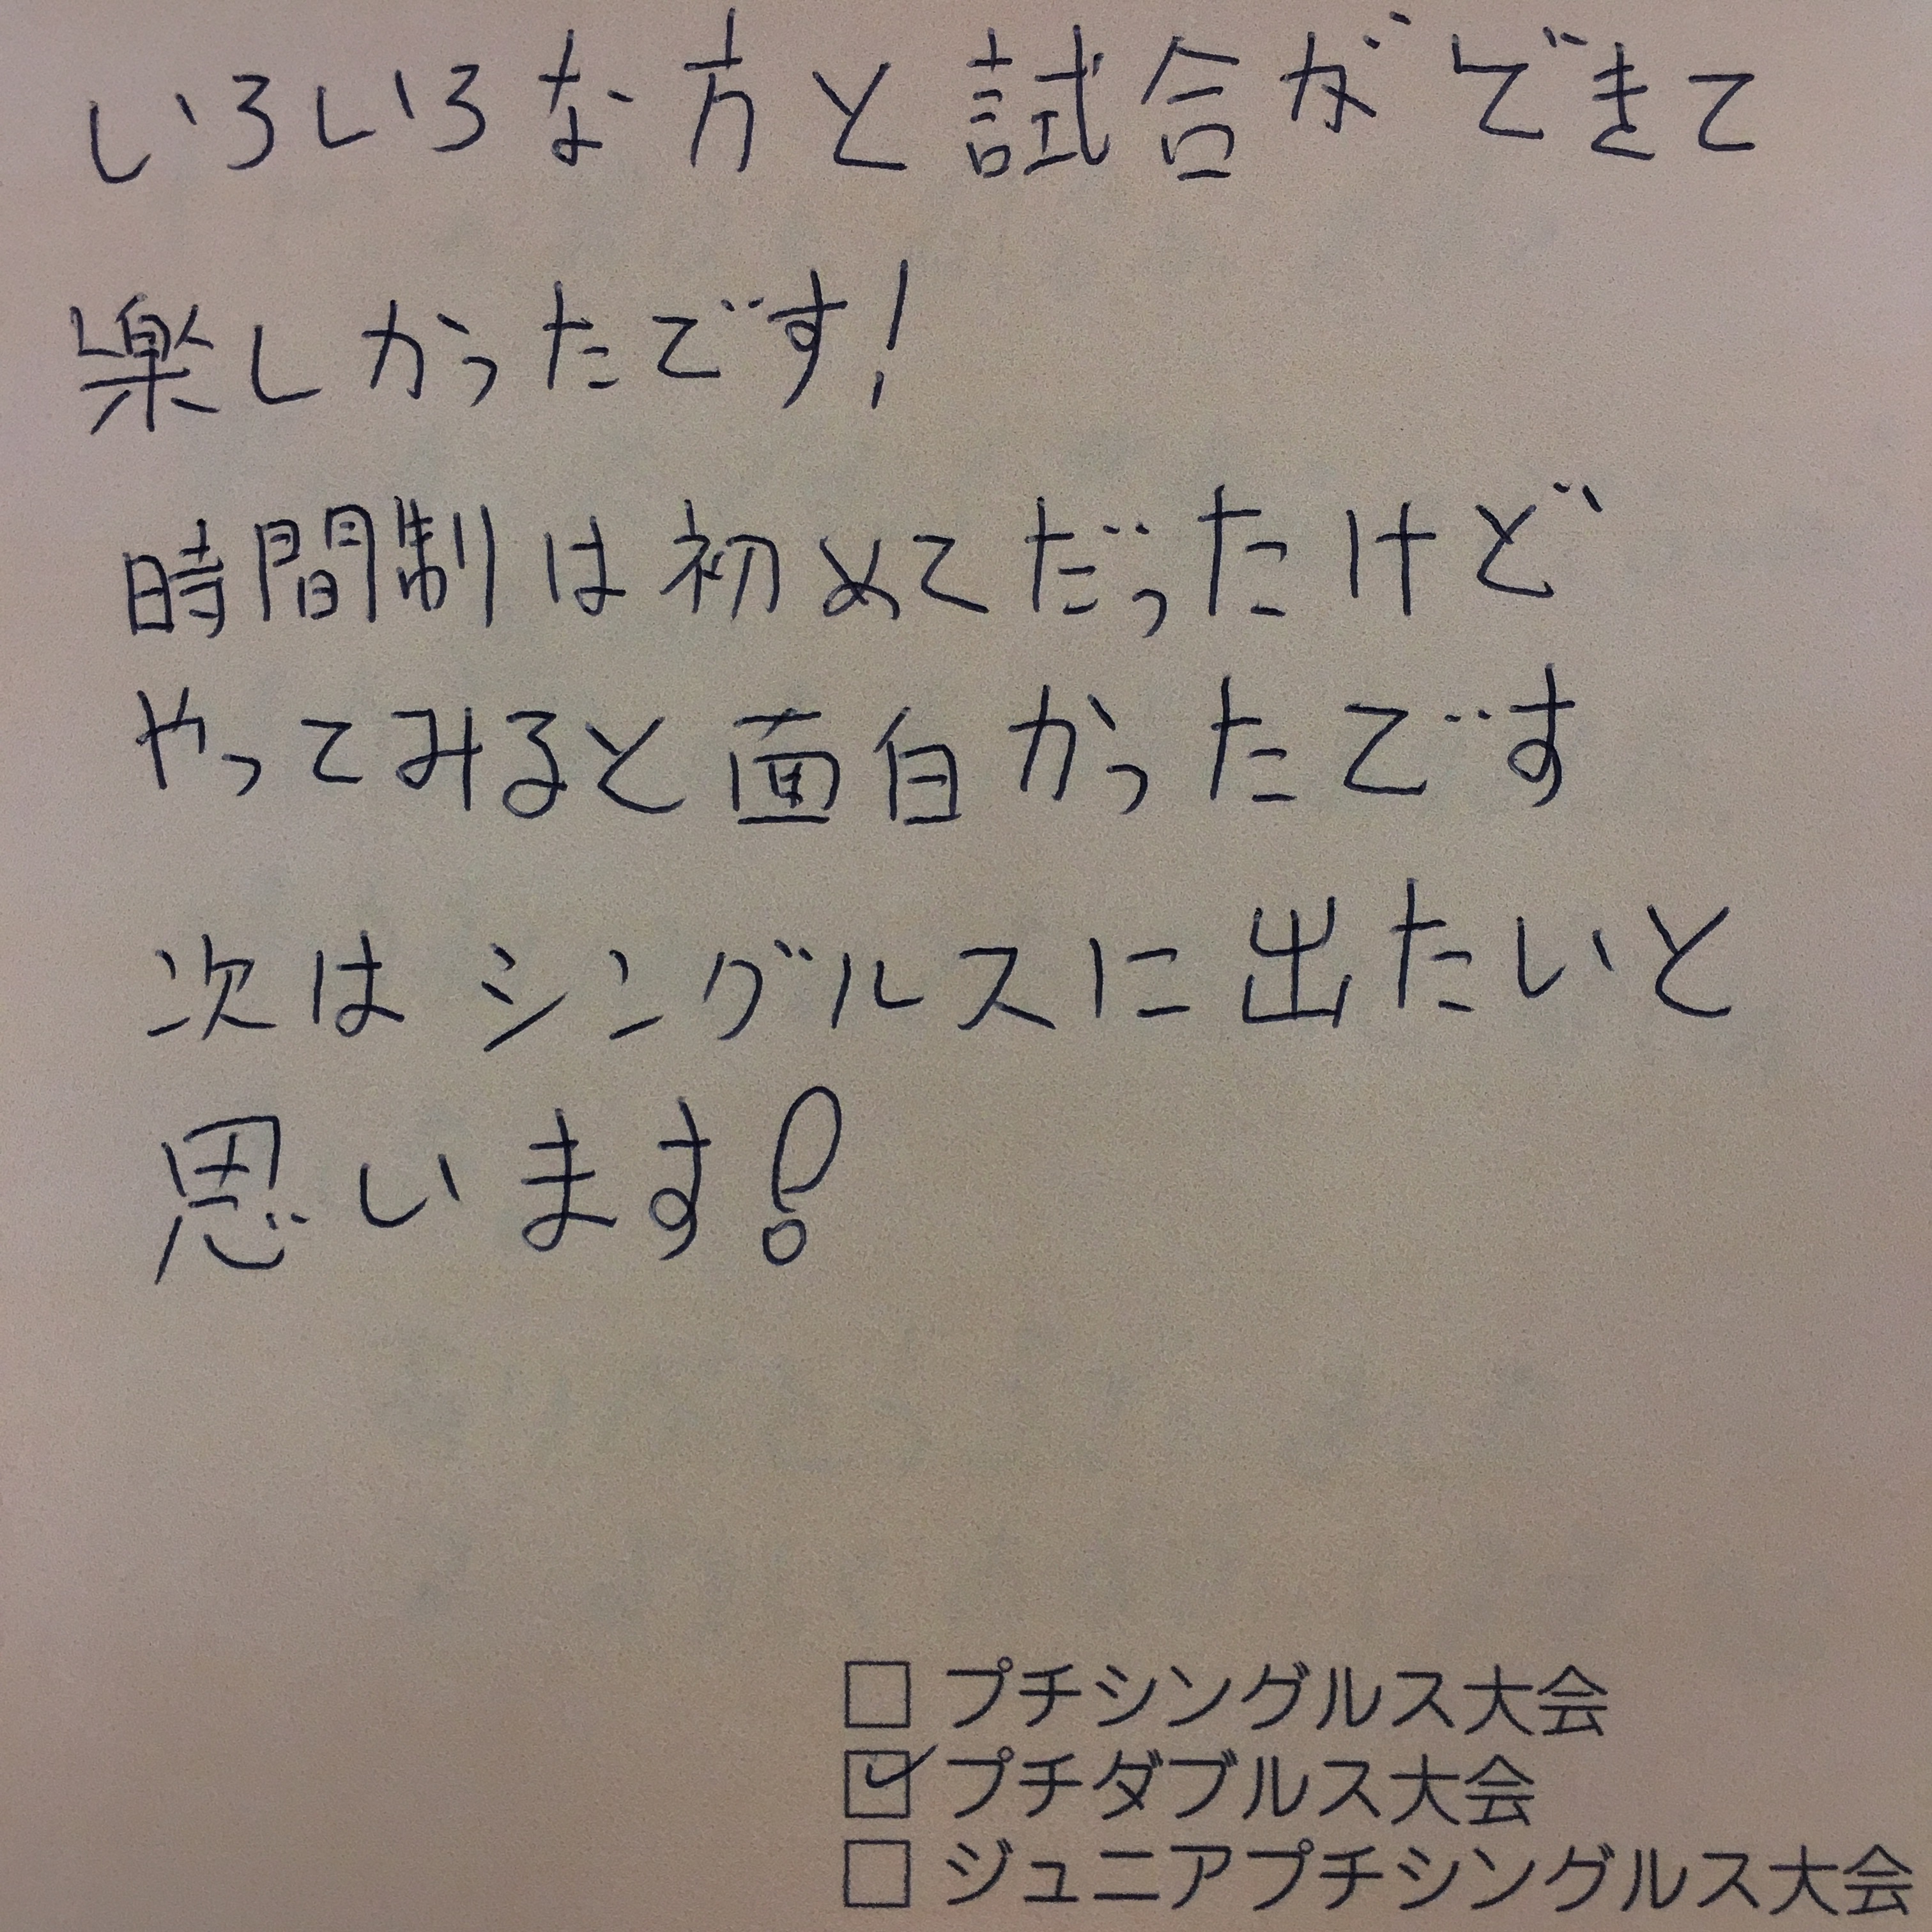 いろいろな方と試合ができて
楽しかったです!
時間制は初めてだったけど
やってみると面白かったです
次はシングルスに出たいと
思います!
□ プチシングルス大会
☑ プチダブルス大会
□ ジュニアプチシングルス大会